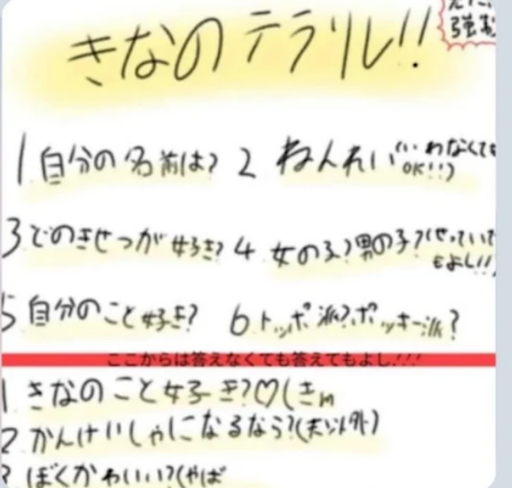 きなのテラリル!!
強
1 自分の名前は? 2 ねんれい(いわなくても OK!!)
3 どのきせつが好き? 4 女の子?男の子?(せっていで
もよし!!
5 自分のこと好き? 6 トッポ派?ポッキー派?
ここからは答えなくても答えてもよし!!!
1 きなのこと好き?♡(きm
2 かんけいしゃになるなら?(夫以外)
3 ぼくかわいい?(やば